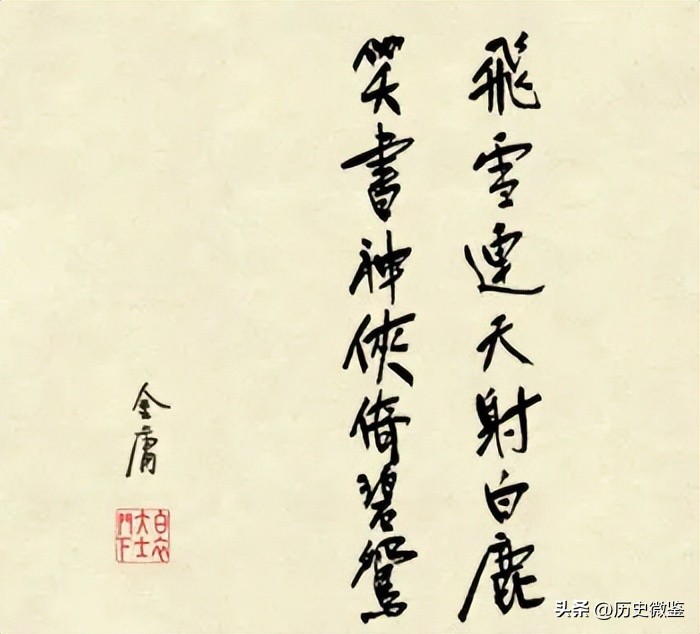 飛雪連天射白鹿
笑書神俠倚碧鴛
金庸
白衣
大士
門下
头条 @历史微鉴